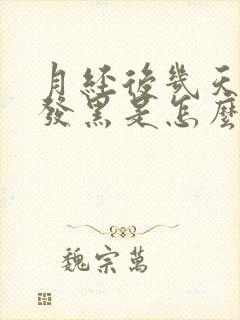 月经後幾天
發黑是怎麼
魏宗萬